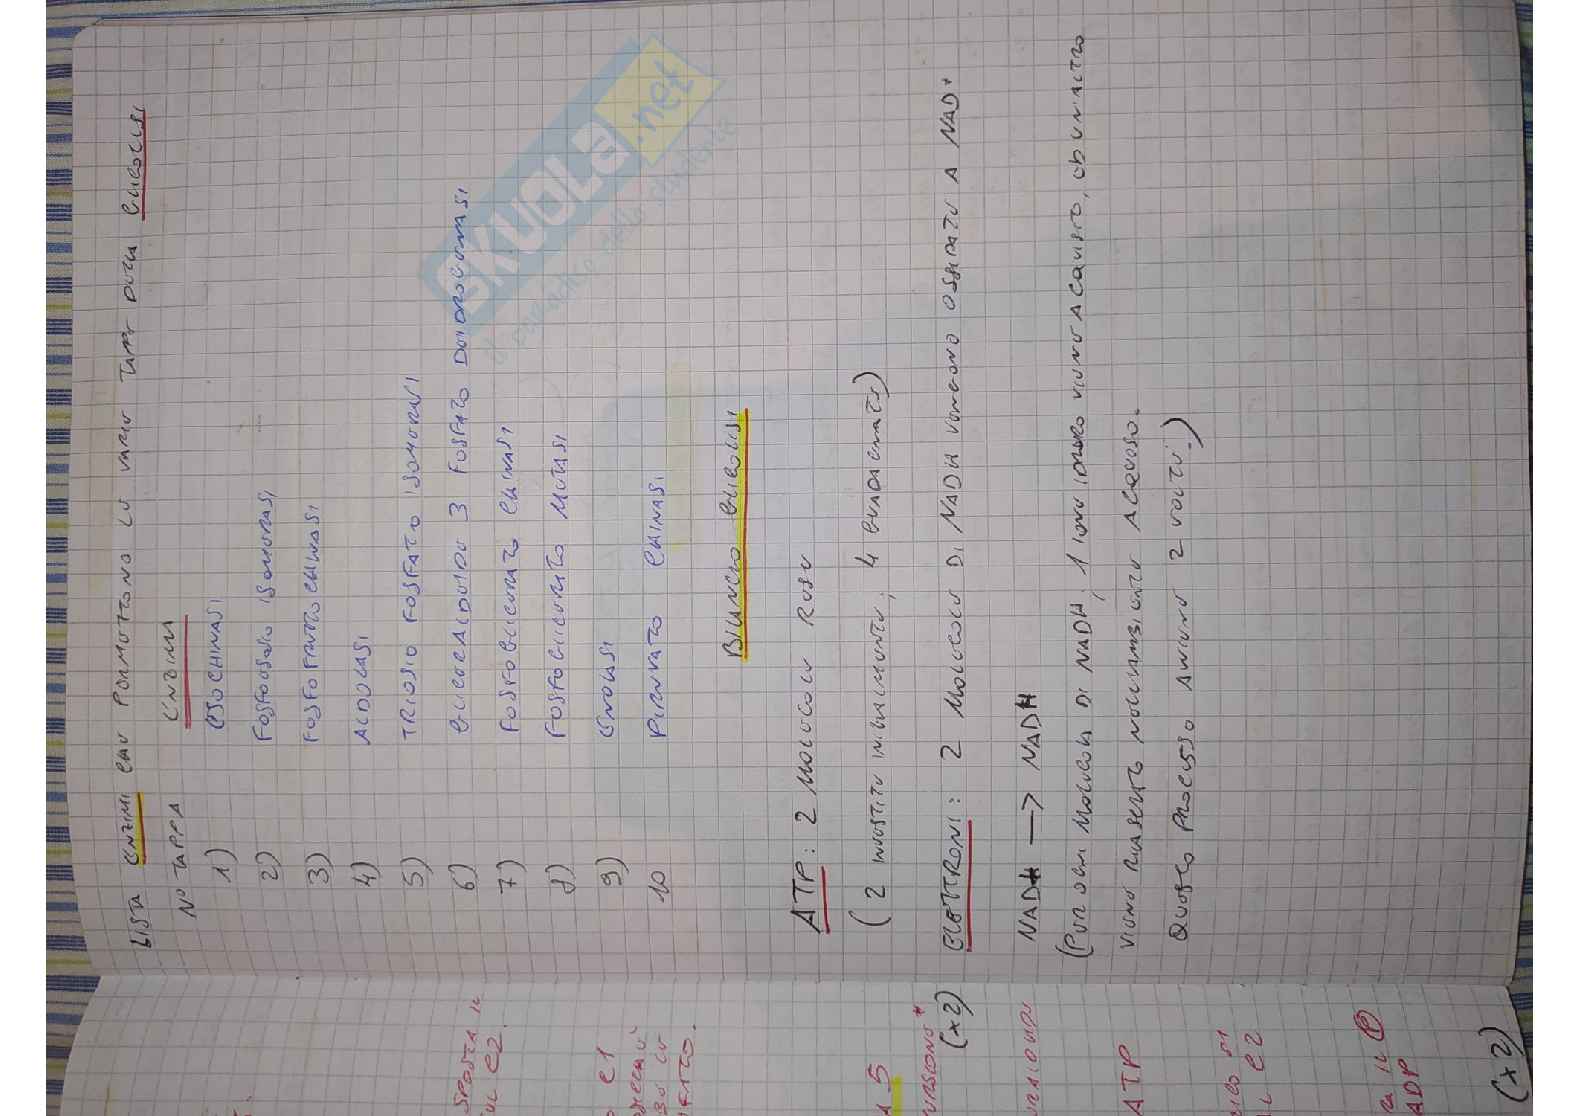 LISTA ENZIMI CHE PERMETTONO LE VARIE TAPPE DELLA GLICOLISI
N° TAPPA ENZIMA
1) ESOCHINASI
2) FOSFOGLUCOSIO ISOMERASI
3) FOSFOFRUTTOCHINASI
4) ALDOLASI
5) TRIOSIO FOSFATO ISOMERASI
6) GLICERALDEIDE 3 FOSFATO DEIDROGENASI
7) FOSFOGLICERATO CHINASI
8) FOSFOGLICERATO MUTASI
9) ENOLASI
10 PIRUVATO CHINASI
BILANCIO GLICOLISI
ATP: 2 MOLECOLE RESE
(2 INVESTITE INIZIALMENTE, 4 GUADAGNATE)
ELETTRONI: 2 MOLECOLE DI NADH VENGONO OSSIDATE A NAD+
NADH → NADH
(PER OGNI MOLECOLA DI NADH, 1 IONE IDRURO VIENE ACQUISITO, ED UN ALTRO
VIENE RILASCIATO NELL'AMBIENTE ACQUOSO.
QUESTO PROCESSO AVVIENE 2 VOLTE.)
SPOSTA IL
C2.
C1
5
(x2)
ATP
C2
IL P
ADP
(x2)
SKUOLA.net
il paradiso dello studente